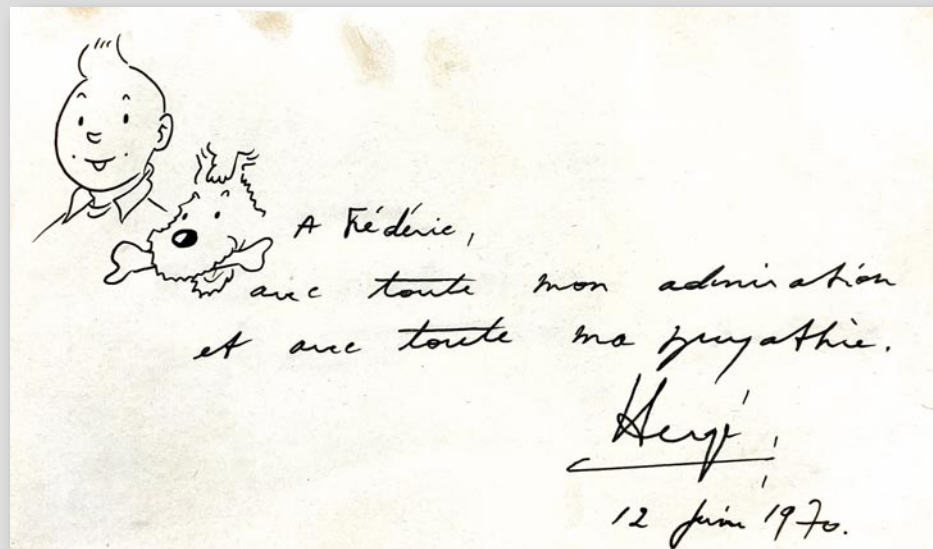 A Frédéric,
avec toute mon admiration
et avec toute ma sympathie.
Hergé,
12 juin 1970.